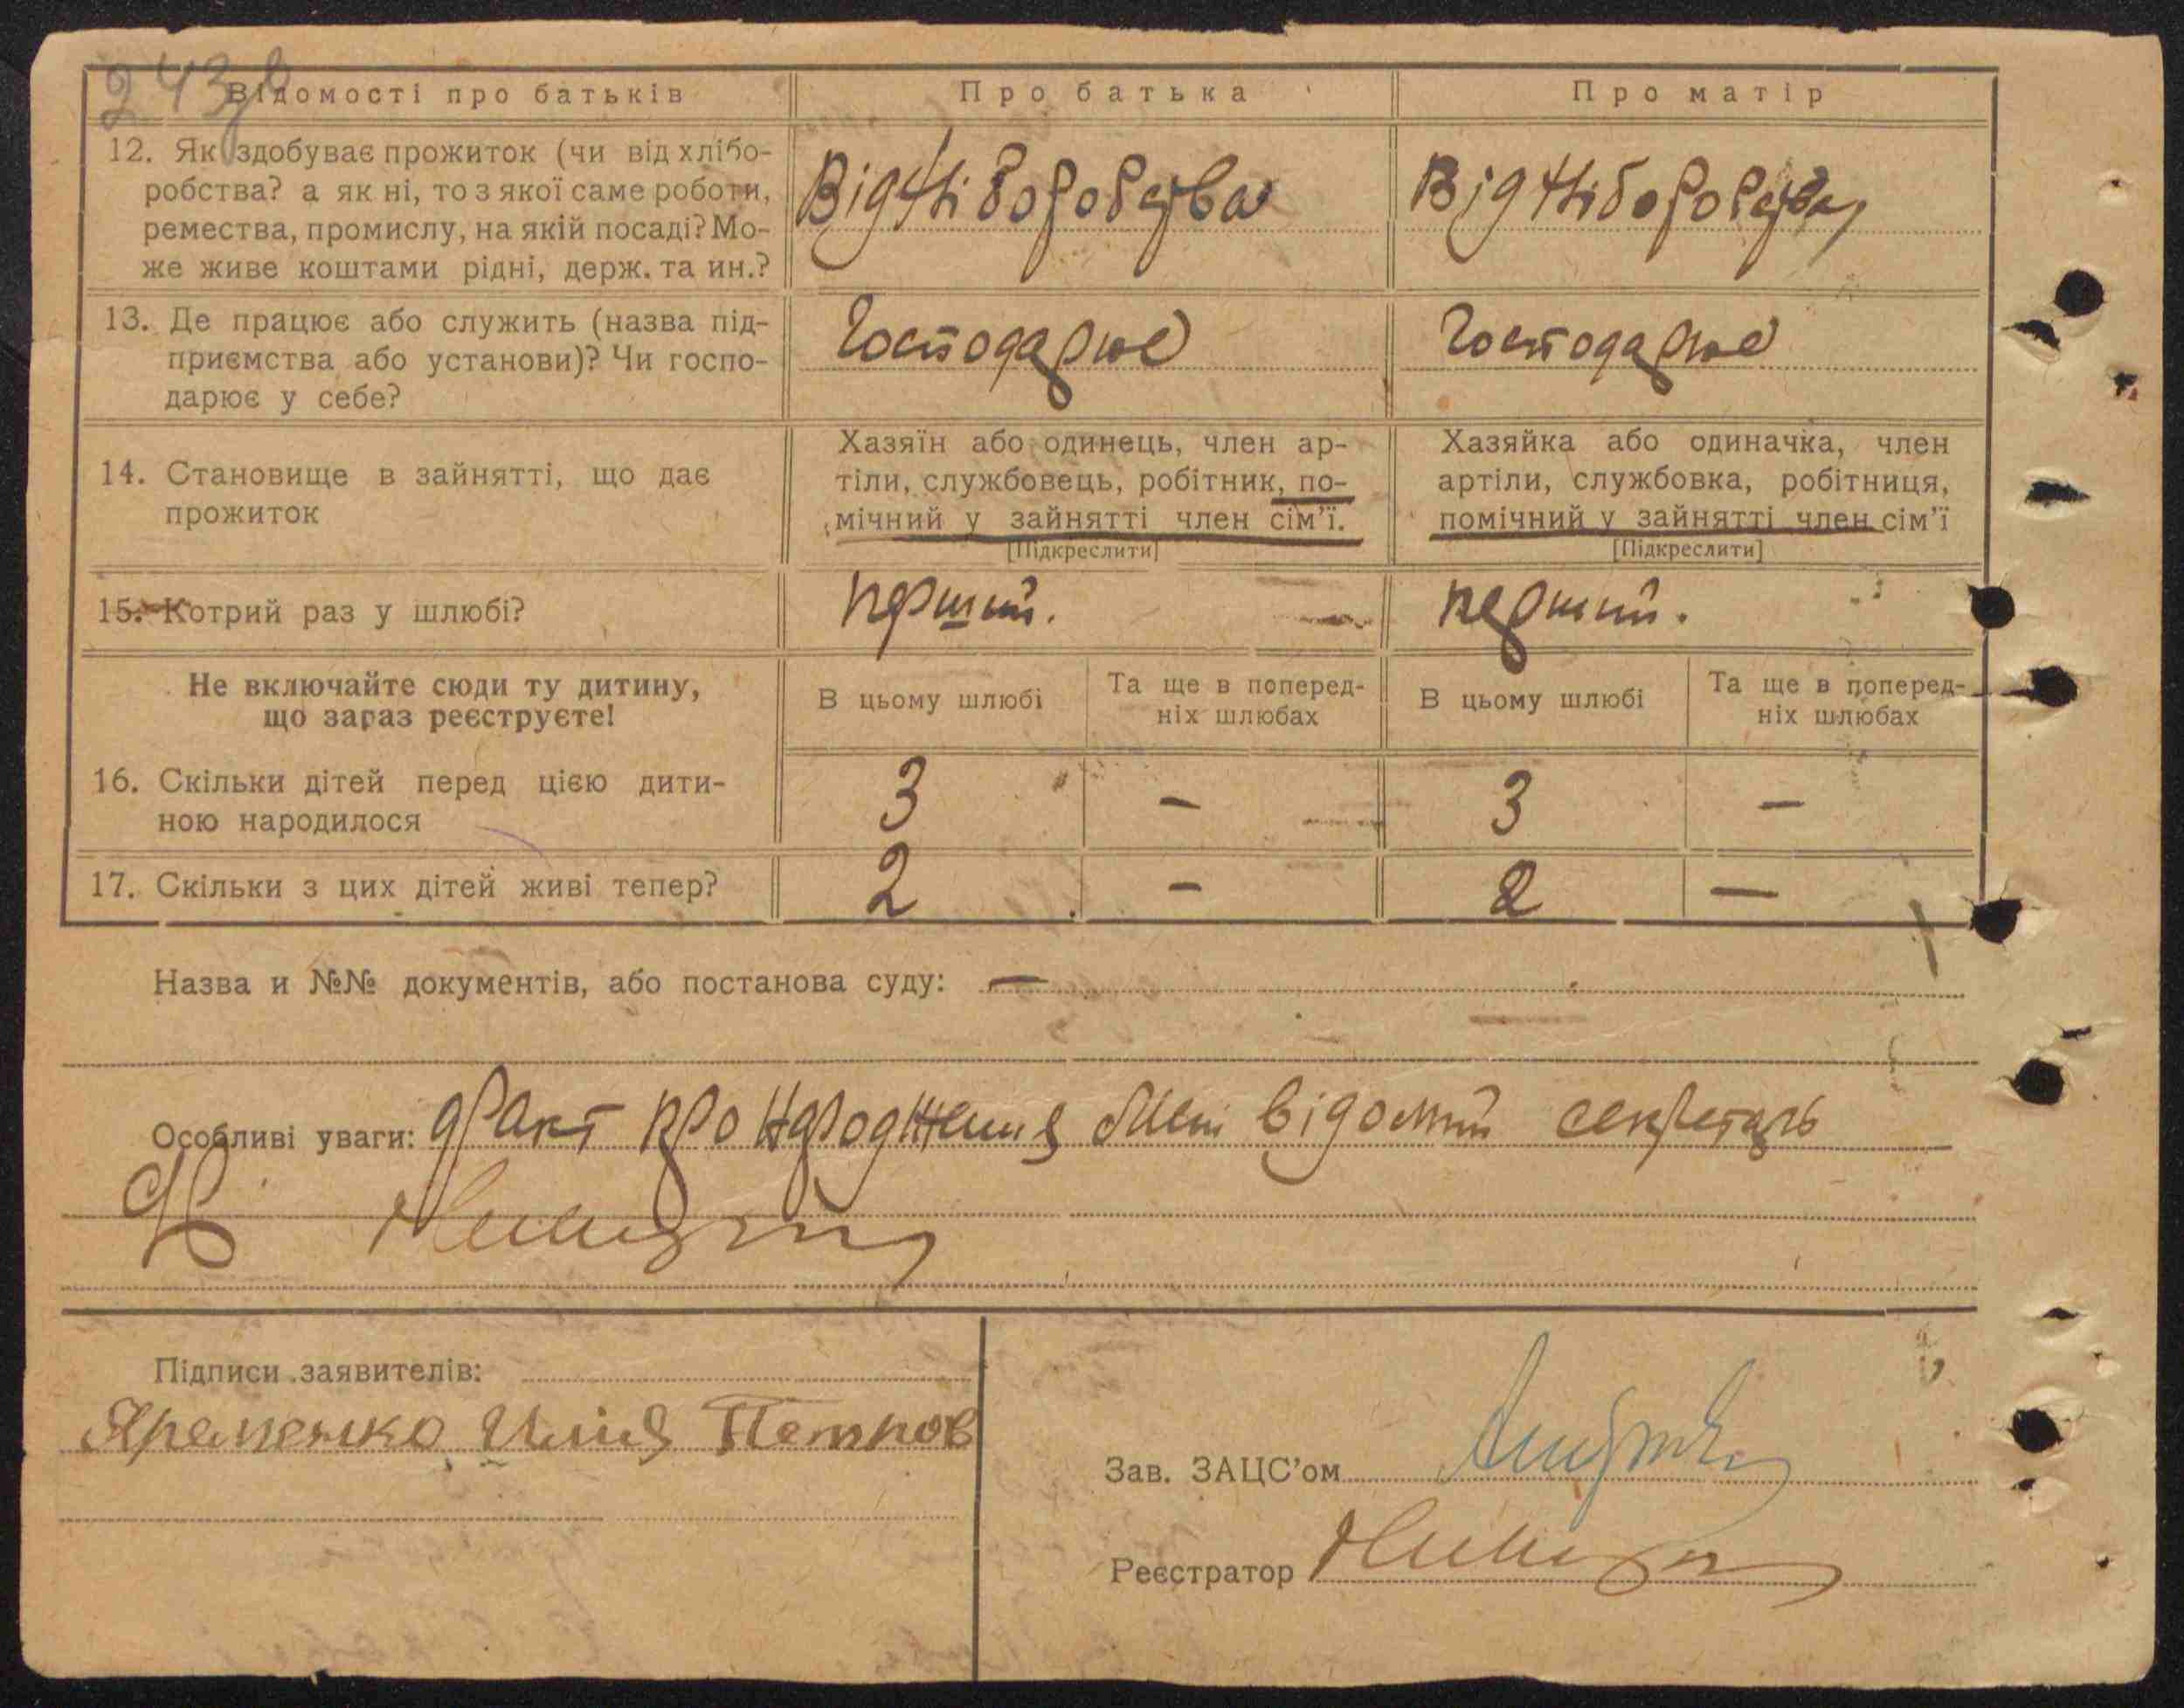 243
Відомості про батьків
Про батька
Про матір
12. Як здобуває прожиток (чи від хлібо-
робства? а як ні, то з якої саме роботи,
ремества, промислу, на якій посаді? Мо-
же живе коштами рідні, держ. та ин.?
Від хліборобства
Від хліборобства
13. Де працює або служить (назва під-
приємства або установи)? Чи госпо-
дарює у себе?
Господарює
Господарює
14. Становище в зайнятті, що дає
прожиток
Хазяїн або одинець, член ар-
тіли, службовець, робітник, по-
мічний у зайнятті член сім'ї.
[Підкреслити]
Хазяйка або одиначка, член
артіли, службовка, робітниця,
помічний у зайнятті член сім'ї
[Підкреслити]
15. Котрий раз у шлюбі?
перший.
перший.
Не включайте сюди ту дитину,
що зараз реєструєте!
В цьому шлюбі
Та ще в поперед-
ніх шлюбах
В цьому шлюбі
Та ще в поперед-
ніх шлюбах
16. Скільки дітей перед цією дити-
ною народилося
3
–
3
–
17. Скільки з цих дітей живі тепер?
2
–
2
–
Назва и №№ документів, або постанова суду: –
Особливі уваги: факт про народження мені відомий секретарь
Підписи заявителів:
Яременко Илия Петров
Зав. ЗАЦС'ом
Реєстратор